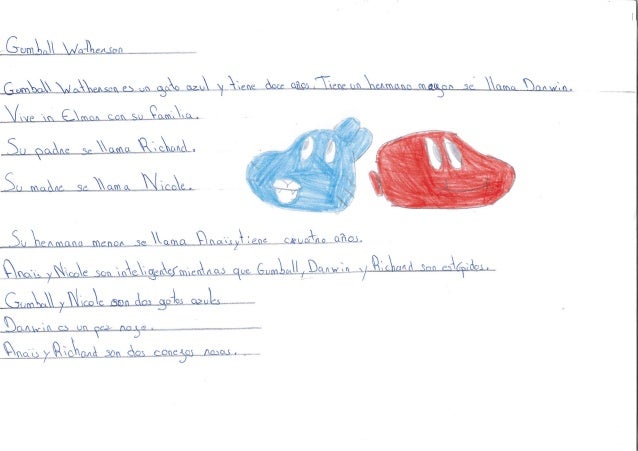 Gumball Wathenson
Gumball Wathenson es un gato azul y tiene doce años. Tiene un hermano mayor se llama Darwin.
Vive in Elmon con su familia.
Su padre se llama Richard.
Su madre se llama Nicole.
Su hermana menor se llama Anaïs y tiene cuatro años.
Anaïs y Nicole son inteligentes mientras que Gumball, Darwin y Richard son estúpidos.
Gumball y Nicole son dos gatos azules
Darwin es un pez rojo.
Anaïs y Richard son dos conejos rosas.